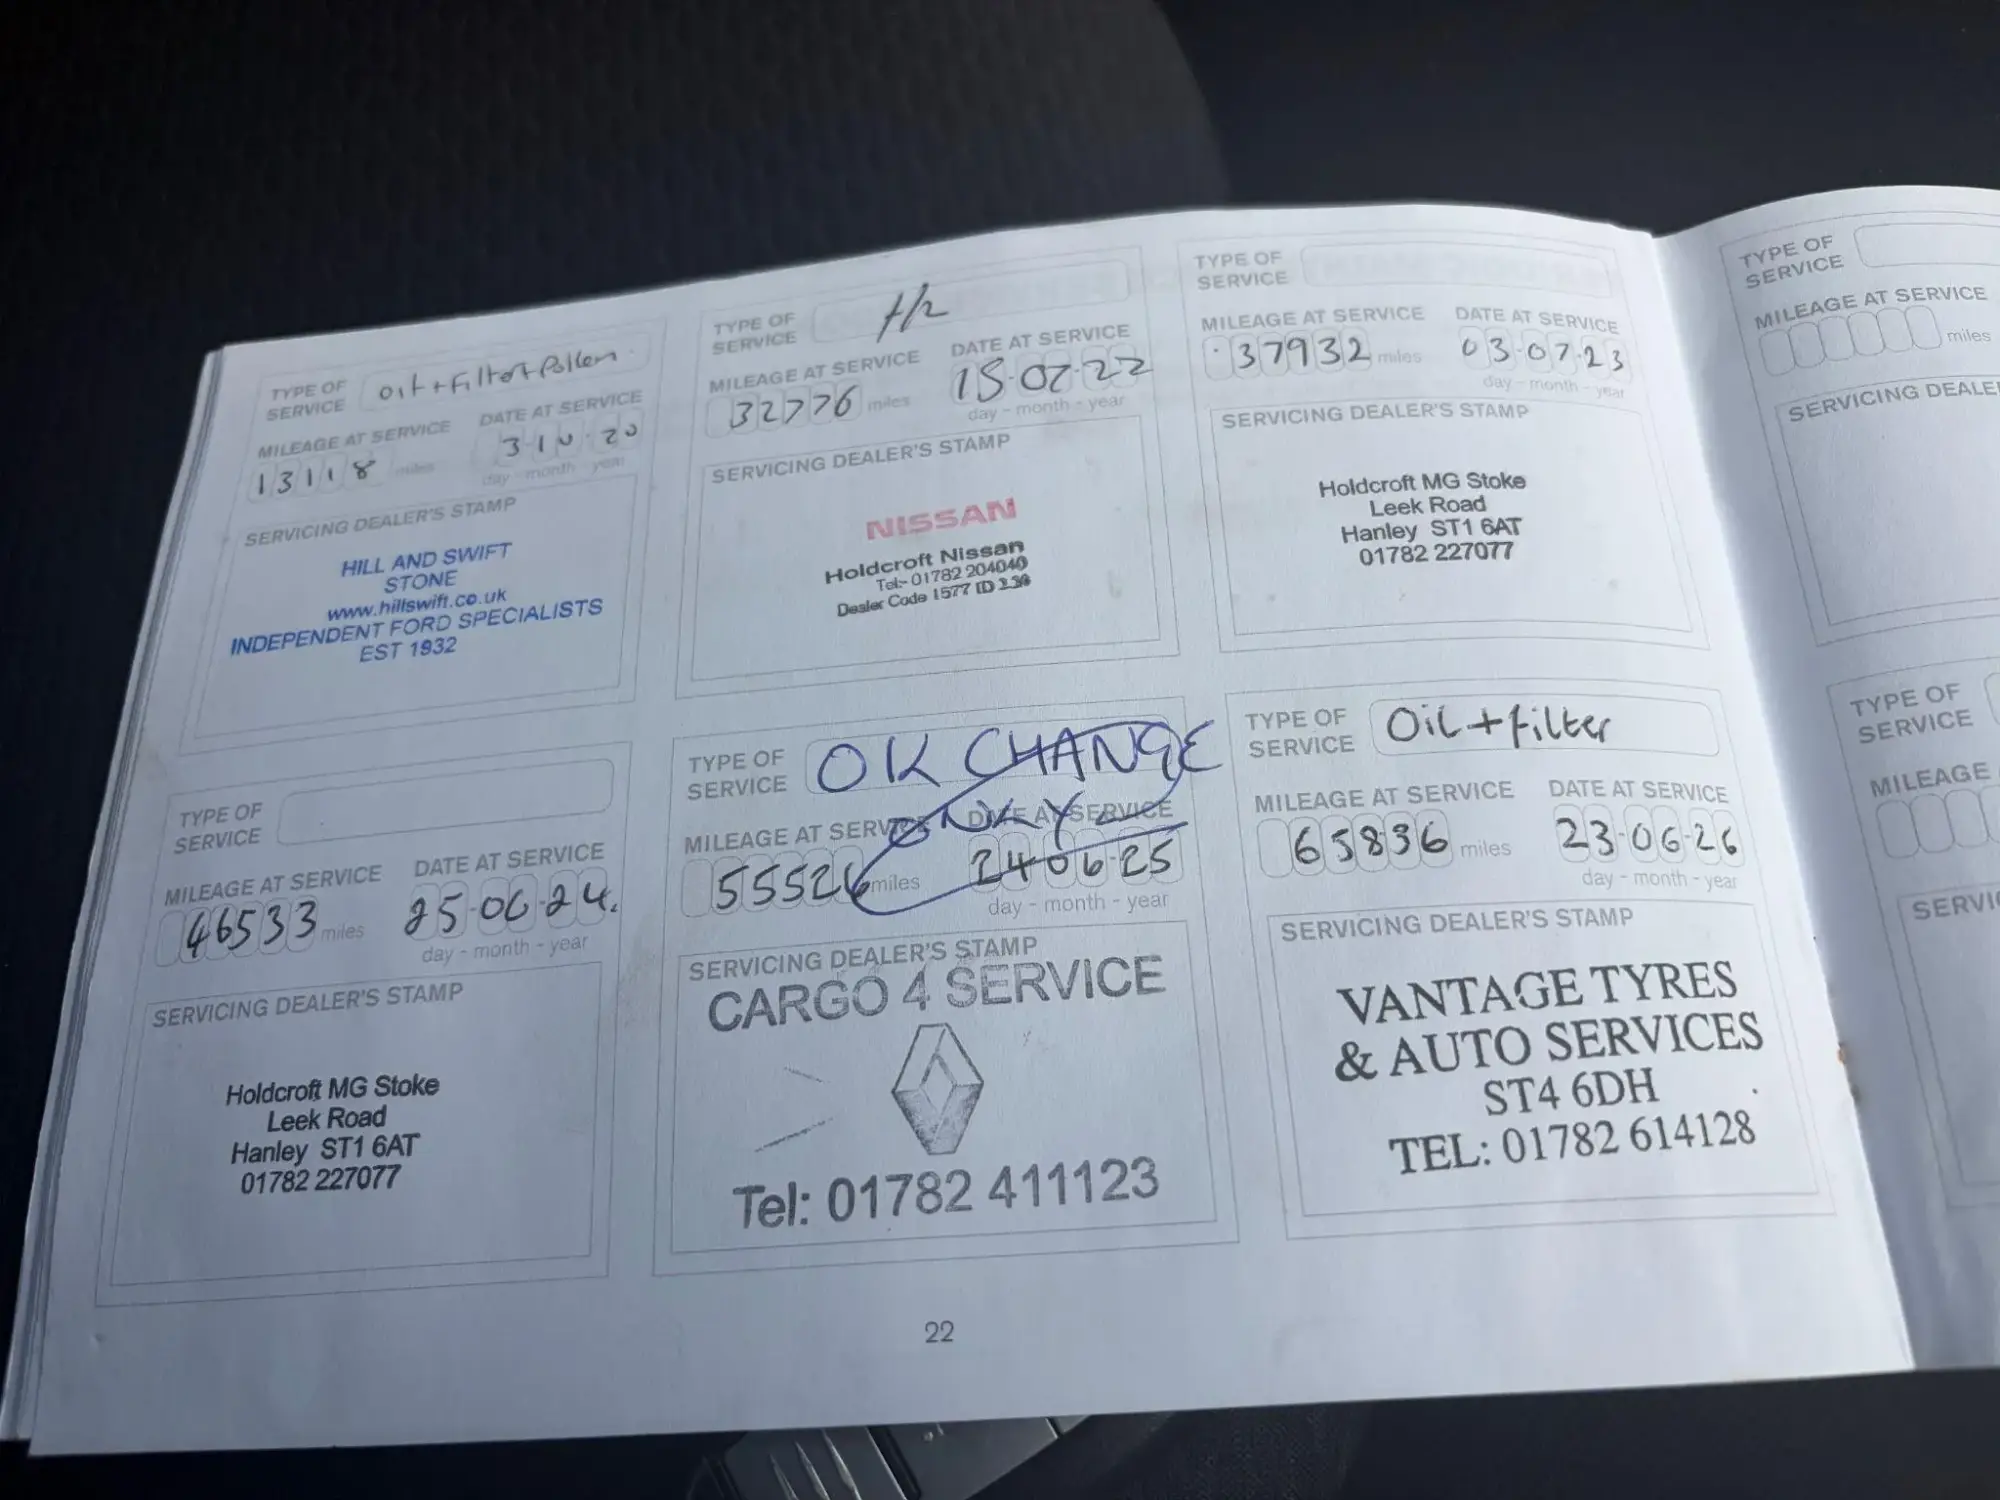 TYPE OF SERVICE Oil + Filter + Pollen
MILEAGE AT SERVICE DATE AT SERVICE
13118 miles 3-10-20
day - month - year
SERVICING DEALER'S STAMP
HILL AND SWIFT
STONE
www.hillswift.co.uk
INDEPENDENT FORD SPECIALISTS
EST 1932
TYPE OF SERVICE
MILEAGE AT SERVICE DATE AT SERVICE
32776 miles 15-07-22
day - month - year
SERVICING DEALER'S STAMP
NISSAN
Holdcroft Nissan
Tel:- 01782 204040
Dealer Code 1577 ID 2.36
TYPE OF SERVICE
MILEAGE AT SERVICE DATE AT SERVICE
37932 miles 03-07-23
day - month - year
SERVICING DEALER'S STAMP
Holdcroft MG Stoke
Leek Road
Hanley ST1 6AT
01782 227077
TYPE OF SERVICE
MILEAGE AT SERVICE
miles
SERVICING DEALE
TYPE OF SERVICE
MILEAGE AT SERVICE DATE AT SERVICE
46533 miles 25-06-24.
day - month - year
SERVICING DEALER'S STAMP
Holdcroft MG Stoke
Leek Road
Hanley ST1 6AT
01782 227077
TYPE OF SERVICE OIL CHANGE
ONLY
MILEAGE AT SERVICE DATE AT SERVICE
55526 miles 24-06-25
day - month - year
SERVICING DEALER'S STAMP
CARGO 4 SERVICE
Tel: 01782 411123
TYPE OF SERVICE Oil + filter
MILEAGE AT SERVICE DATE AT SERVICE
65836 miles 23-06-26
day - month - year
SERVICING DEALER'S STAMP
VANTAGE TYRES
& AUTO SERVICES
ST4 6DH
TEL: 01782 614128
TYPE OF SERVICE
MILEAGE
SERVI
22